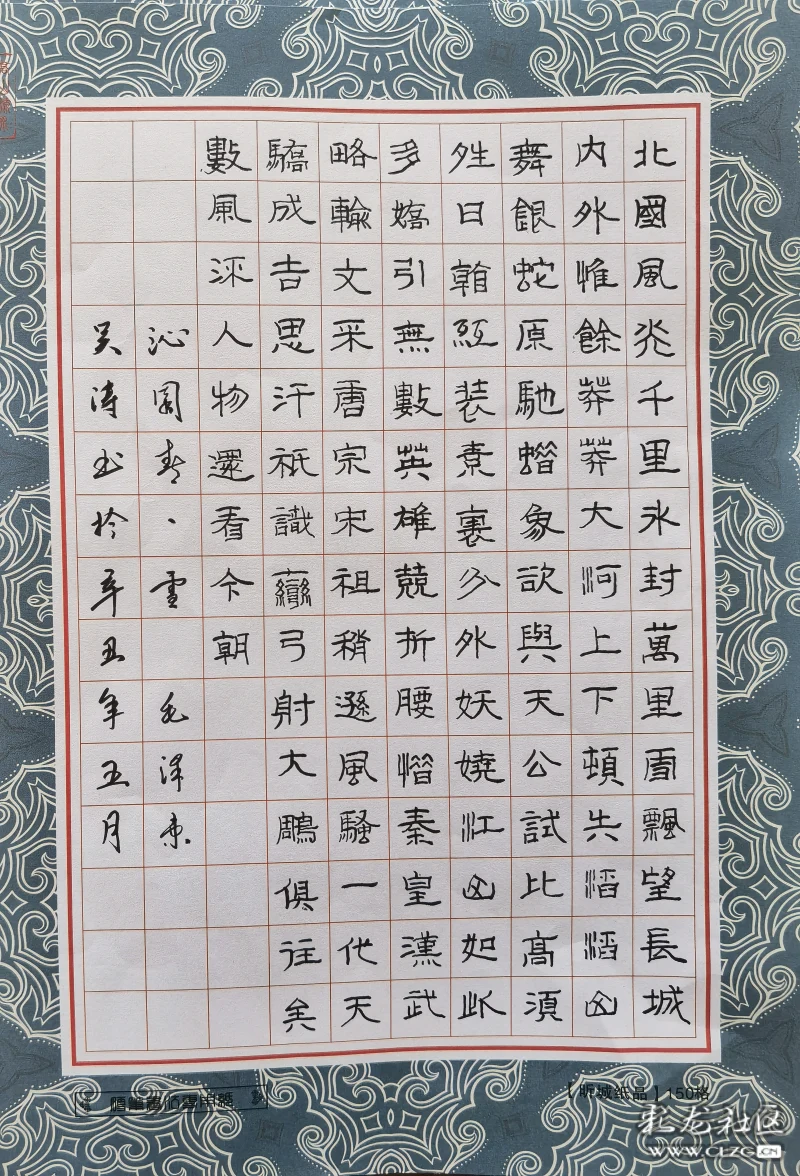 北國風光千里氷封萬里雪飄望長城
内外惟餘莽莽大河上下頓失滔滔山
舞銀蛇原馳蠟象欲與天公試比高須
夝日看紅装素裹分外妖嬈江山如此
多嬌引無數英雄競折腰惜秦皇漢武
略輸文采唐宗宋祖稍遜風騷一代天
驕成吉思汗祇識彎弓射大鵰俱往矣
數風流人物還看今朝
沁園春、雪 毛泽東
吴涛书於辛丑年五月
硬筆書法專用紙
【昕城纸品】150格
社区
WWW.CLZG.CN